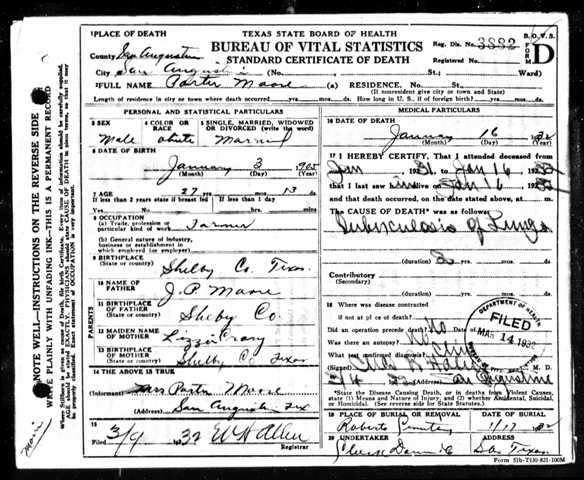 1 PLACE OF DEATH
TEXAS STATE BOARD OF HEALTH
BUREAU OF VITAL STATISTICS
STANDARD CERTIFICATE OF DEATH
B.O.V.S.
FORM D
Reg. Dis. No. 3882
Registered No.
County San Augustine
City San Augustine (No. St.; Ward)
2 FULL NAME Porter Moore (a) RESIDENCE. No.
(If nonresident give city or town and State)
Length of residence in city or town where death occurred yrs. mos. ds. How long in U. S., if of foreign birth? yrs. mos. ds.
PERSONAL AND STATISTICAL PARTICULARS
3 SEX
4 COLOR OR RACE
5 SINGLE, MARRIED, WIDOWED OR DIVORCED (write the word)
Male white Married
6 DATE OF BIRTH
January 3 1905
(Month) (Day) (Year)
7 AGE
27 yrs. mos. 13 ds.
If less than 2 years state if breast fed
If less than 1 day
Yes No hrs. min.
8 OCCUPATION
(a) Trade, profession or particular kind of work Farmer
(b) General nature of industry, business or establishment in which employed or employer
9 BIRTHPLACE
(State or country) Shelby Co. Texas
PARENTS
10 NAME OF FATHER J. P. Moore
11 BIRTHPLACE OF FATHER
(State or country) Shelby Co.
12 MAIDEN NAME OF MOTHER Lizzie Crary
13 BIRTHPLACE OF MOTHER
(State or country) Shelby Co. Texas
14 THE ABOVE IS TRUE
(Informant) Mrs Porter Moore
(Address) San Augustine Tex
15
Filed 3/9 1932 W H Allen
Registrar
MEDICAL PARTICULARS
16 DATE OF DEATH
January 16 1932
(Month) (Day) (Year)
17 I HEREBY CERTIFY, That I attended deceased from
Jan 1931, to Jan 16 1932
that I last saw him alive on Jan 16 1932
and that death occurred, on the date stated above, at m.
The CAUSE OF DEATH was as follows:
Tuberculosis of Lungs
(duration) 2
Contributory
(Secondary)
(duration) yrs. mos. ds.
18 Where was disease contracted
if not at place of death?
Did an operation precede death? No Date of
Was there an autopsy? No
What test confirmed diagnosis?
(Signed) M. D.
(Address) San Augustine
DEPARTMENT OF HEALTH
FILED
MAR 14 1932
*State the Disease Causing Death, or in deaths from Violent Causes, state (1) Means and Nature of Injury, and (2) whether Accidental, Suicidal, or Homicidal. (See reverse side for State Statutes.)
19 PLACE OF BURIAL OR REMOVAL
DATE OF BURIAL
Roberts Cemetery 1/17 32
20 UNDERTAKER
ADDRESS
Texas
Form 51b-T130-831-100M
NOTE WELL—INSTRUCTIONS ON THE REVERSE SIDE
WRITE PLAINLY WITH UNFADING INK—THIS IS A PERMANENT RECORD